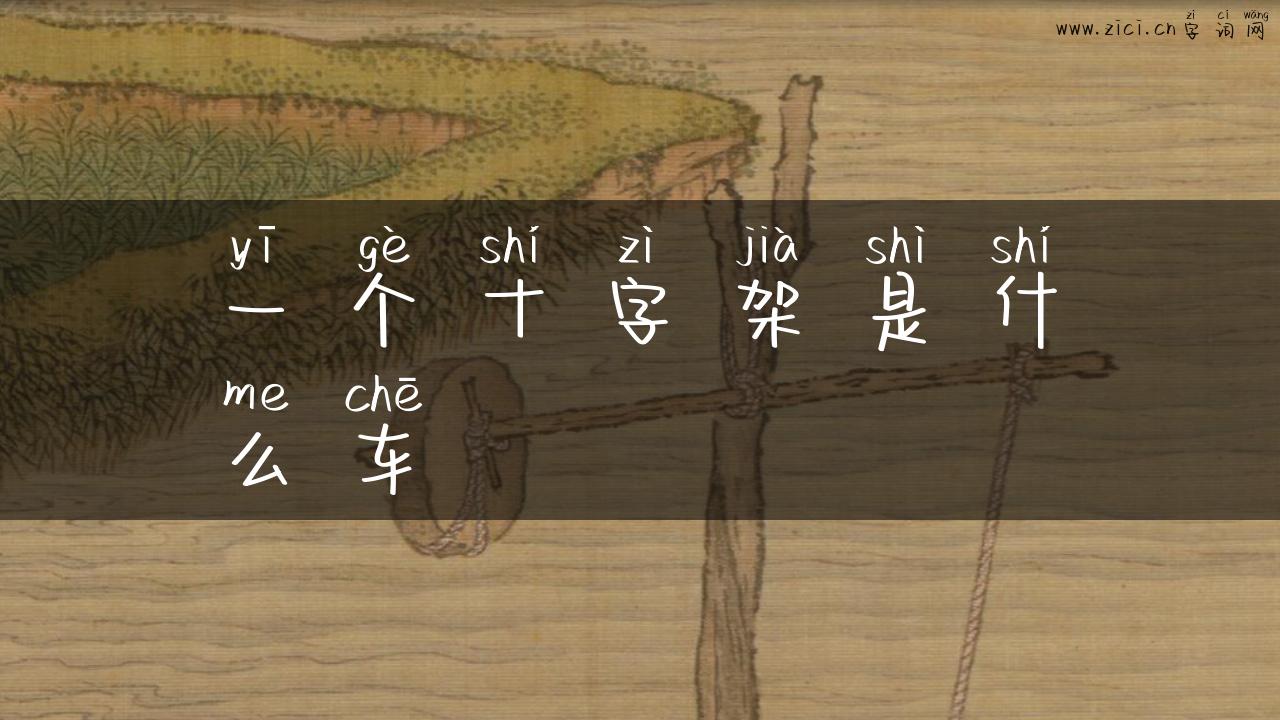 zì cí wǎng
www.zici.cn 字词网
yī gè shí zì jià shì shí
一个十字架是什
me chē
么车